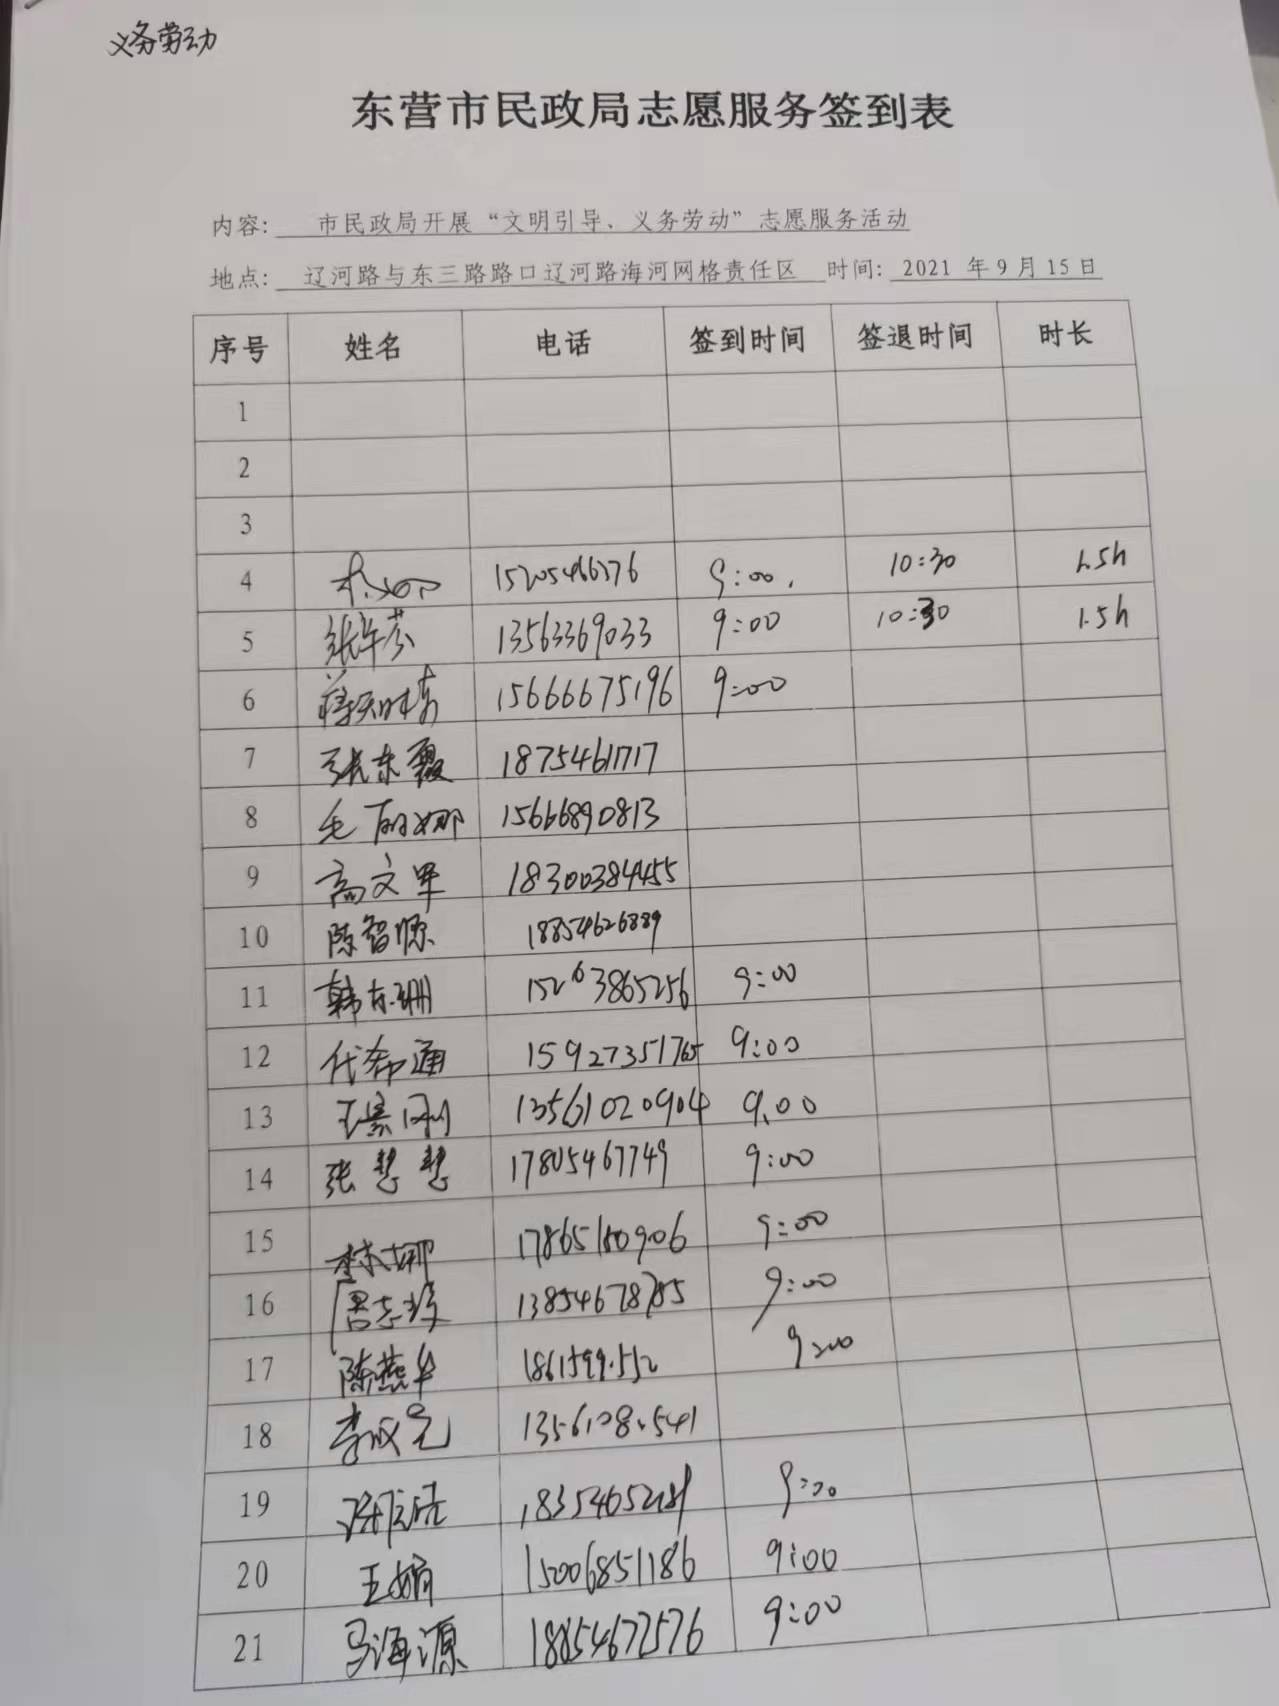 义务劳动
东营市民政局志愿服务签到表
内容: 市民政局开展“文明引导、义务劳动”志愿服务活动
地点: 辽河路与东三路路口辽河路海河网格责任区 时间: 2021 年 9 月 15 日
序号 姓名 电话 签到时间 签退时间 时长
1
2
3
4 15205466376 9:00. 10:30 1.5h
5 张午芬 13563369033 9:00 10:30 1.5h
6 15666675196 9:00
7 张东霞 18754461717
8 毛丽娜 15666890813
9 高文军 18300384455
10 陈智源 18854626889
11 韩东珊 15263865256 9:00
12 代希通 15927351765 9:00
13 王景刚 13561020904 9:00
14 张慧慧 17805467749 9:00
15 林娜 17865180906 9:00
16 9:00
17 陈燕华 9:00
18 李汉光
19 9:00
20 王娟 15006851186 9:00
21 马海源 18854672576 9:00